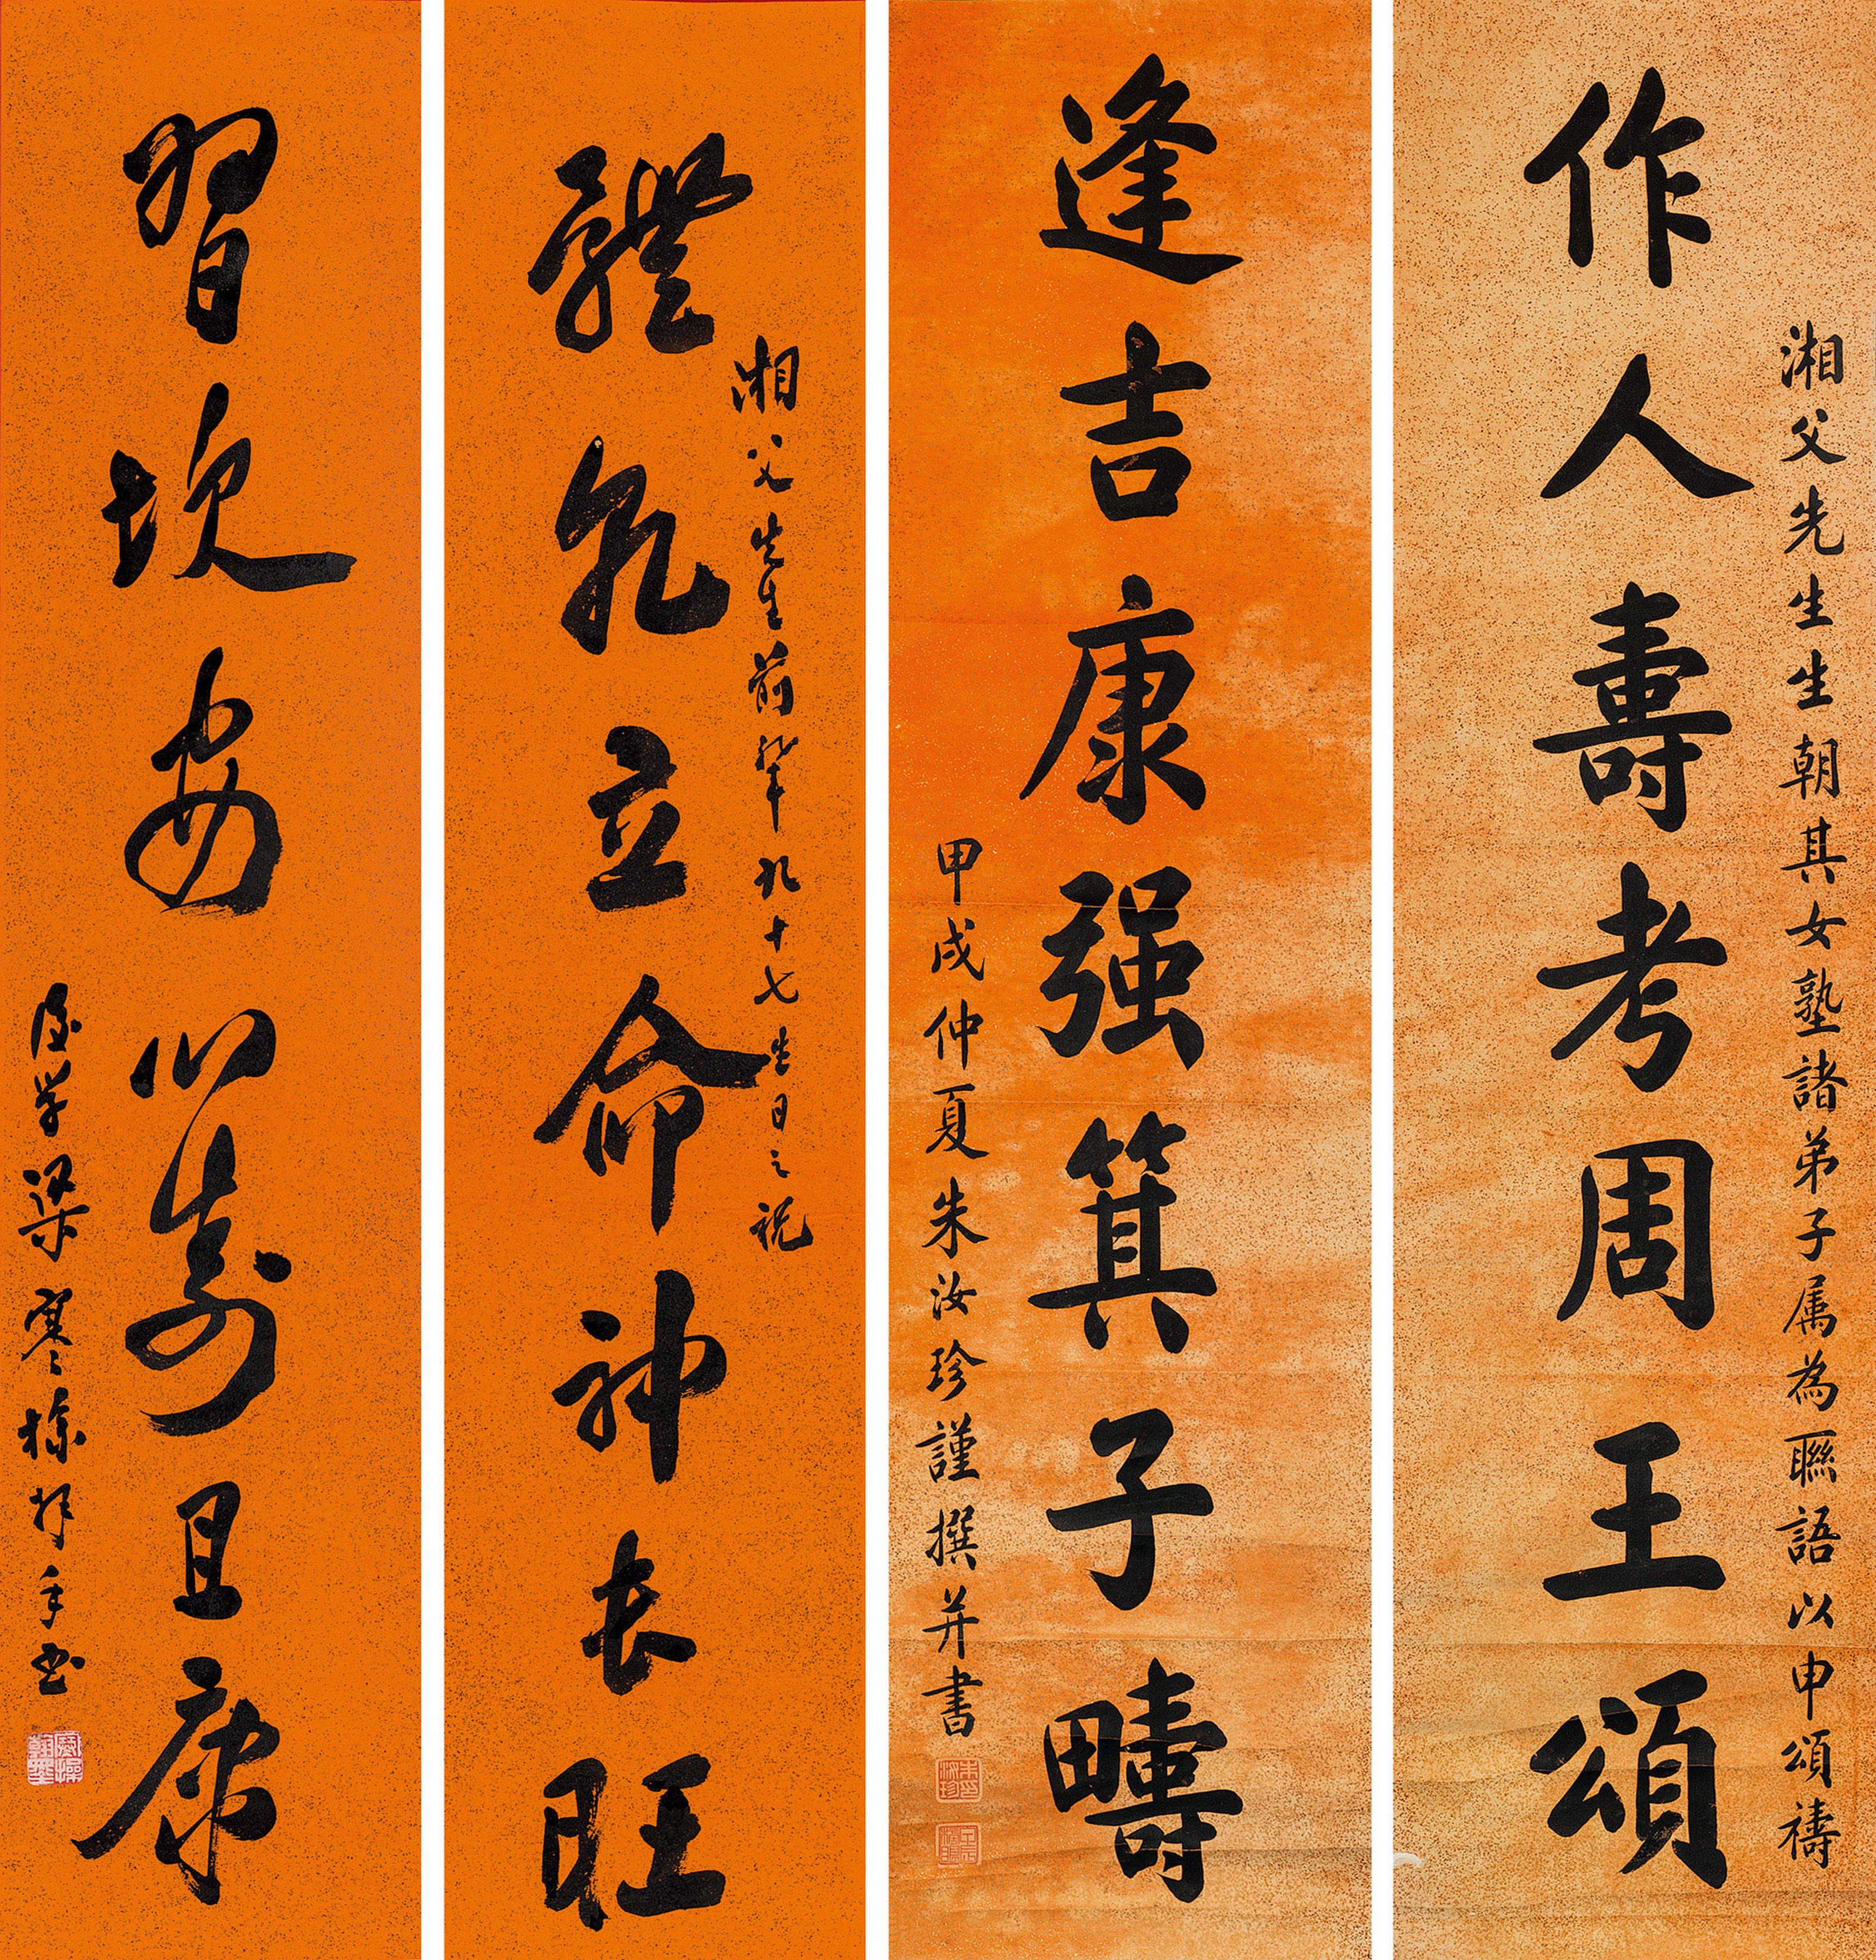 湘父先生生朝其女塾諸弟子属為聯語以申頌禱
作人壽考周王頌
逢吉康强箕子疇
甲戌仲夏朱汝珍謹撰并書
湘父先生前輩九十七生日之祝
體乾立命神長旺
習坎安心壽且康
後學梁寒操拜手書